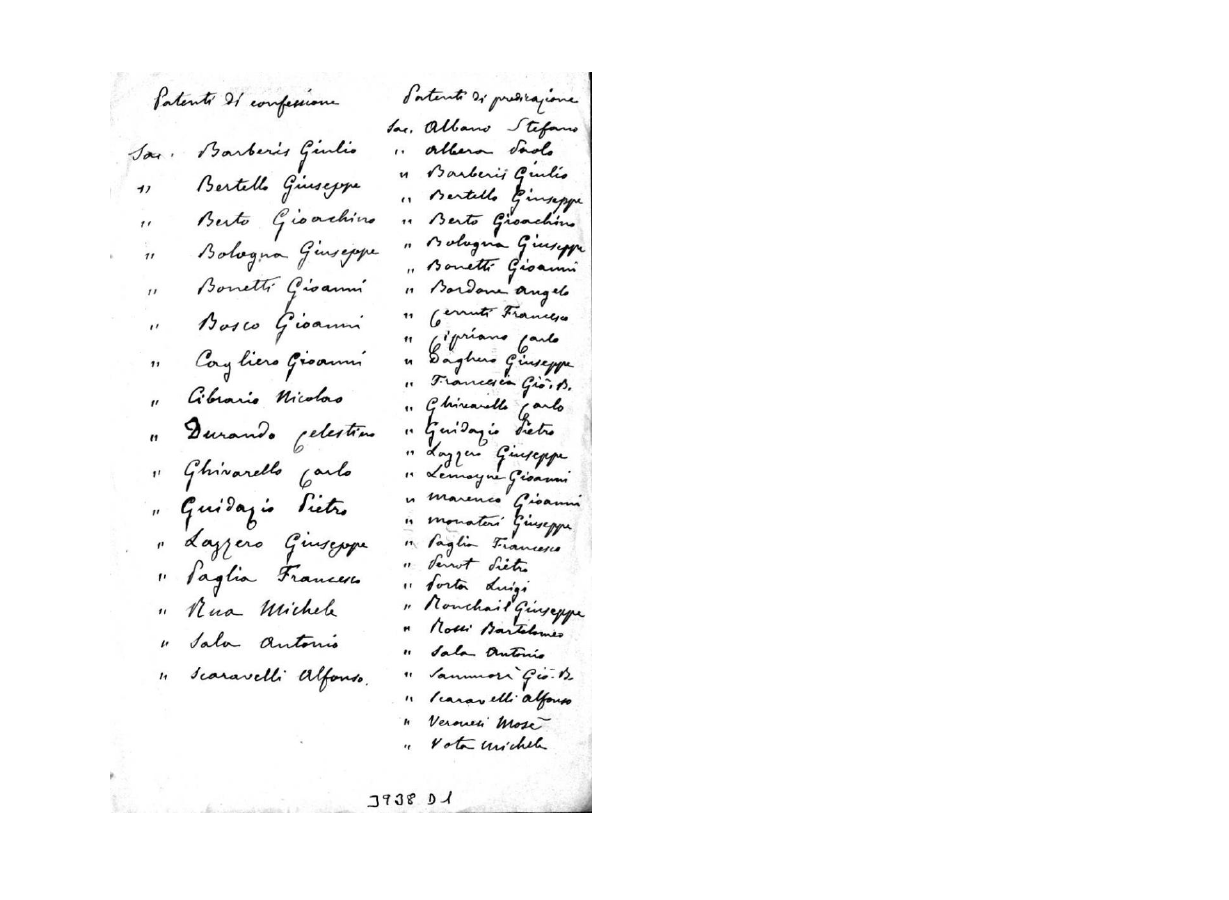 Patenti di confessione
Sac. Barberis Giulio
" Bertello Giuseppe
" Berto Gioachino
" Bologna Giuseppe
" Bonetti Gioanni
" Bosco Gioanni
" Cagliero Gioanni
" Cibrario Nicolao
" Durando Celestino
" Ghivarello Carlo
" Guidazio Pietro
" Lazzero Giuseppe
" Paglia Francesco
" Rua Michele
" Sala Antonio
" Scaravelli Alfonso.
Patenti di predicazione
Sac. Albano Stefano
" Albera Paolo
" Barberis Giulio
" Bertello Giuseppe
" Berto Gioachino
" Bologna Giuseppe
" Bonetti Gioanni
" Bordone Angelo
" Cerruti Francesco
" Cipriano Carlo
" Daghero Giuseppe
" Francesia Gio. B.
" Ghivarello Carlo
" Guidazio Pietro
" Lazzero Giuseppe
" Lemoyne Gioanni
" Marenco Gioanni
" Monateri Giuseppe
" Paglia Francesco
" Perrot Pietro
" Porta Luigi
" Ronchail Giuseppe
" Rossi Bartolomeo
" Sala Antonio
" Gio. B.
" Scaravelli Alfonso
" Veronesi Mosè
" Vota Michele
3938 D1